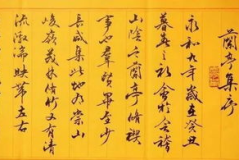 蘭亭集序
永和九年歲在癸丑
暮春之初會於會稽
山陰之蘭亭修禊
事也群賢畢至少
長咸集此地有崇山
峻嶺茂林修竹又有清
流激湍映帶左右